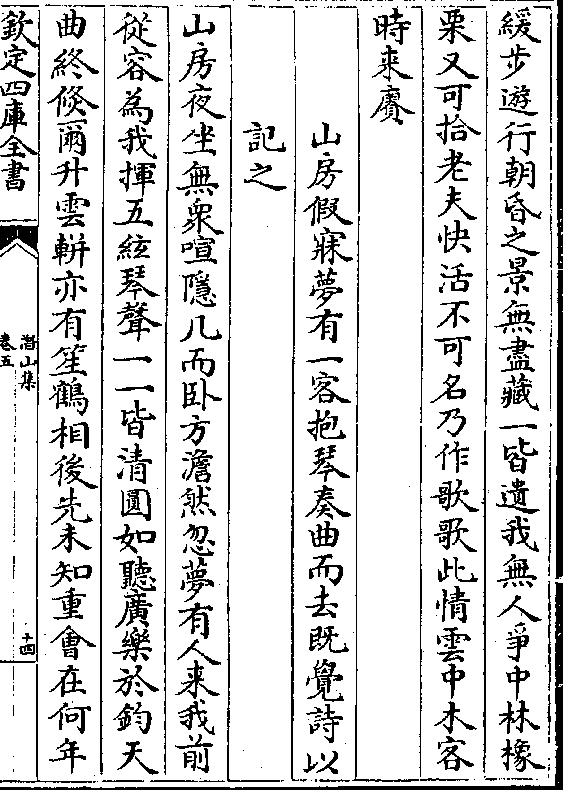 緩步遊行朝昏之景無盡藏一皆遺我無人爭中林橡
栗又可拾老夫快活不可名乃作歌歌此情雲中木客
時来賡
山房假寐夢有一客抱琴奏曲而去既覺詩以
記之
山房夜坐無衆喧隱几而卧方澹然忽夢有人来我前
從容為我揮五絃琴聲一一皆清圓如聽廣樂於鈞天
曲終倐爾升雲輧亦有笙鶴相後先未知重會在何年
欽定四庫全書
潛山集
卷五
十四